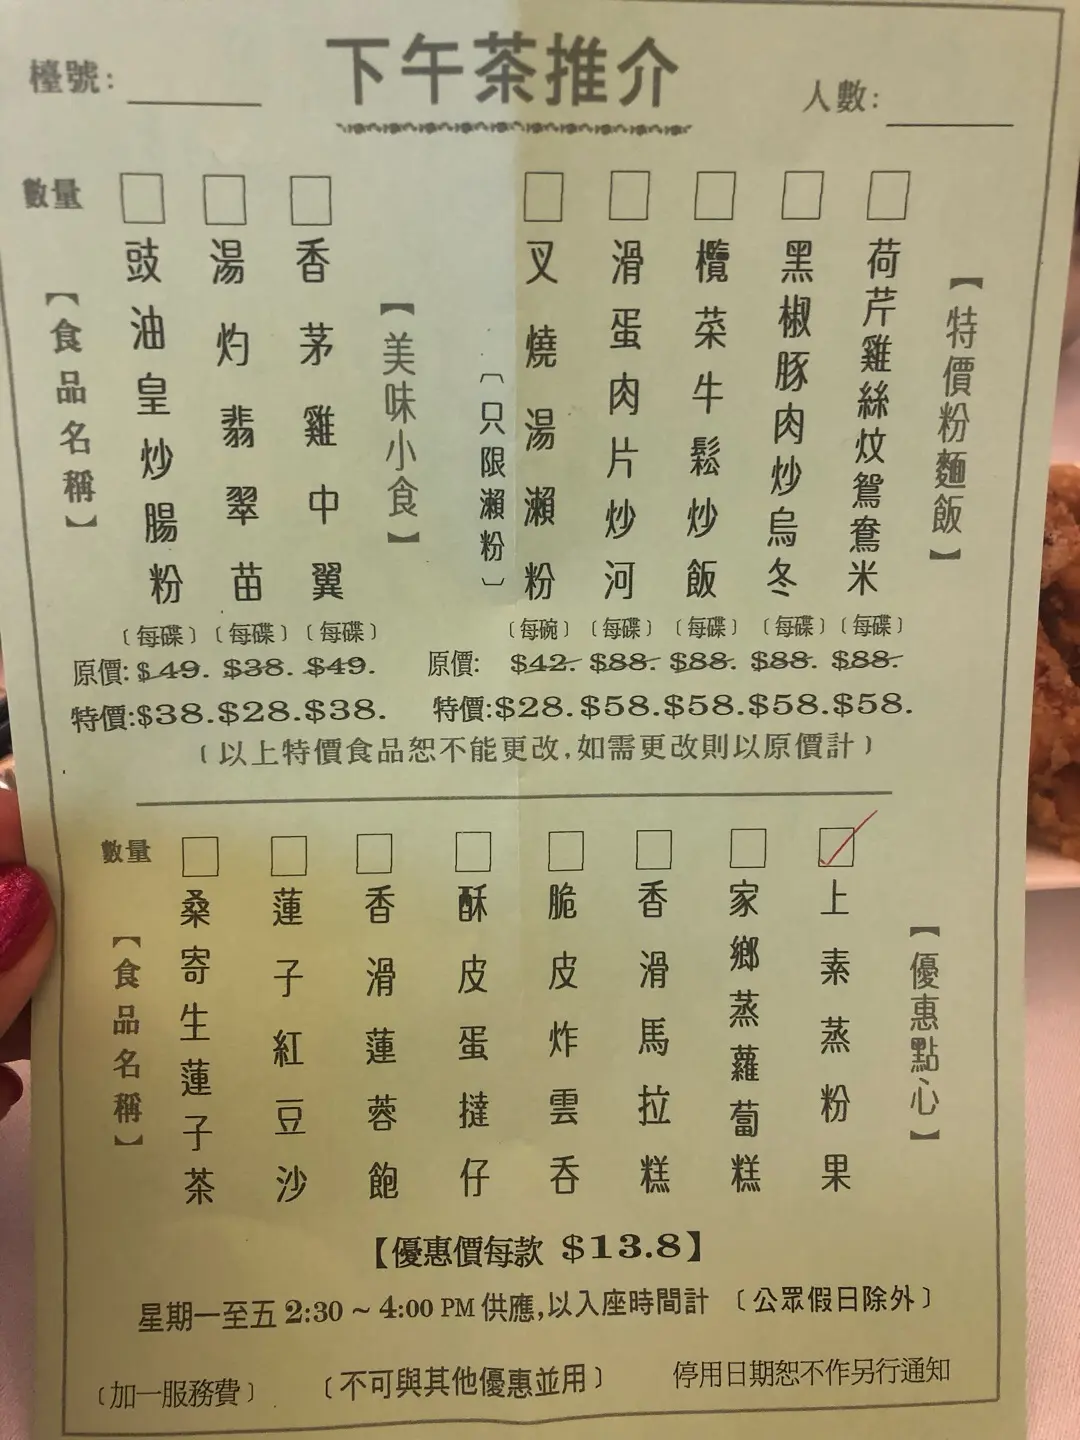 下午茶推介
檯號:
人數:
【特價粉麵飯】
荷芹雞絲炆鴛鴦米
黑椒豚肉炒烏冬
欖菜牛鬆炒飯
滑蛋肉片炒河
叉燒湯瀨粉
〔只限瀨粉〕
【美味小食】
香茅雞中翼
湯灼翡翠苗
豉油皇炒腸粉
數量
【食品名稱】
〔每碟〕〔每碟〕〔每碟〕 〔每碗〕〔每碟〕〔每碟〕〔每碟〕〔每碟〕
原價: $49. $38. $49. 原價: $42. $88. $88. $88. $88.
特價:$38.$28.$38. 特價:$28.$58.$58.$58.$58.
〔以上特價食品恕不能更改,如需更改則以原價計〕
【優惠點心】
上素蒸粉果
家鄉蒸蘿蔔糕
香滑馬拉糕
脆皮炸雲吞
酥皮蛋撻仔
香滑蓮蓉飽
蓮子紅豆沙
桑寄生蓮子茶
數量
【食品名稱】
【優惠價每款 $13.8】
星期一至五 2:30 ~ 4:00 PM 供應,以入座時間計 〔公眾假日除外〕
〔加一服務費〕 〔不可與其他優惠並用〕 停用日期恕不作另行通知